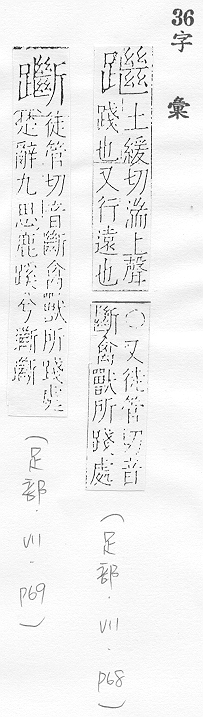 36字
彙
土緩切湍上聲
踐也又行遠也
○又徒管切音
斷禽獸所踐處
(足部.VII.p68)
躖
徒管切音斷禽獸所踐處
楚辭九思鹿蹊兮躖躖
(足部.VII.p69)